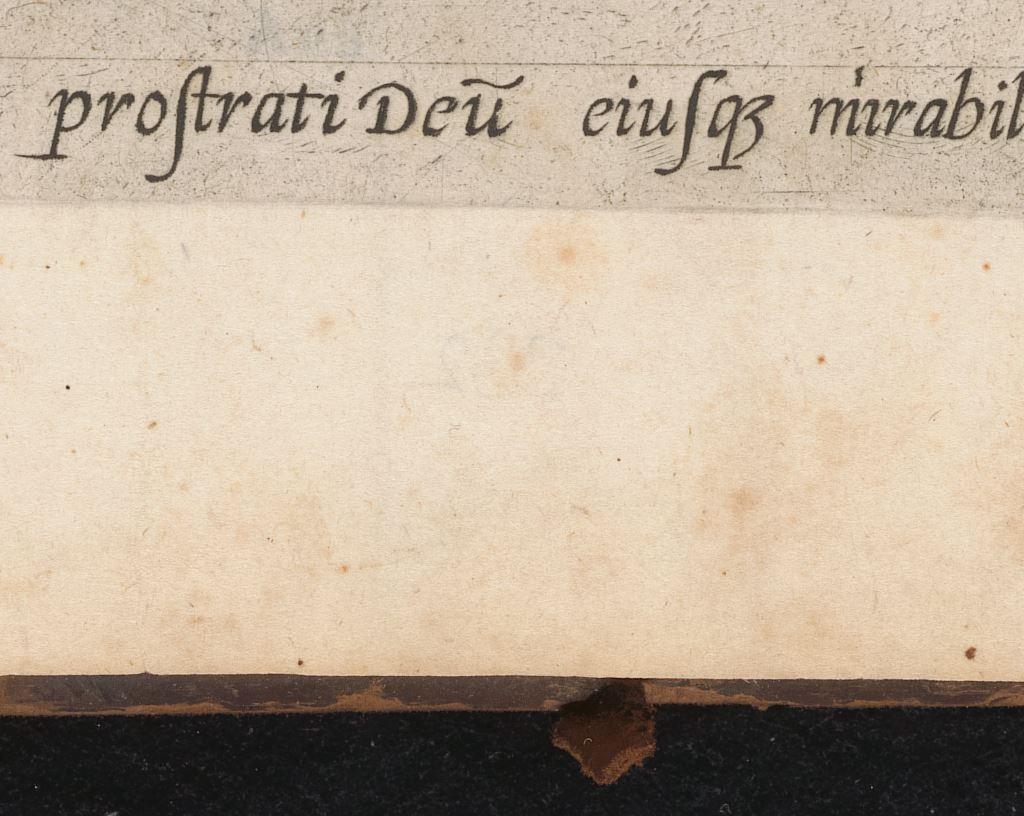 proſtrati Deū eiuſqꝫ mirabil